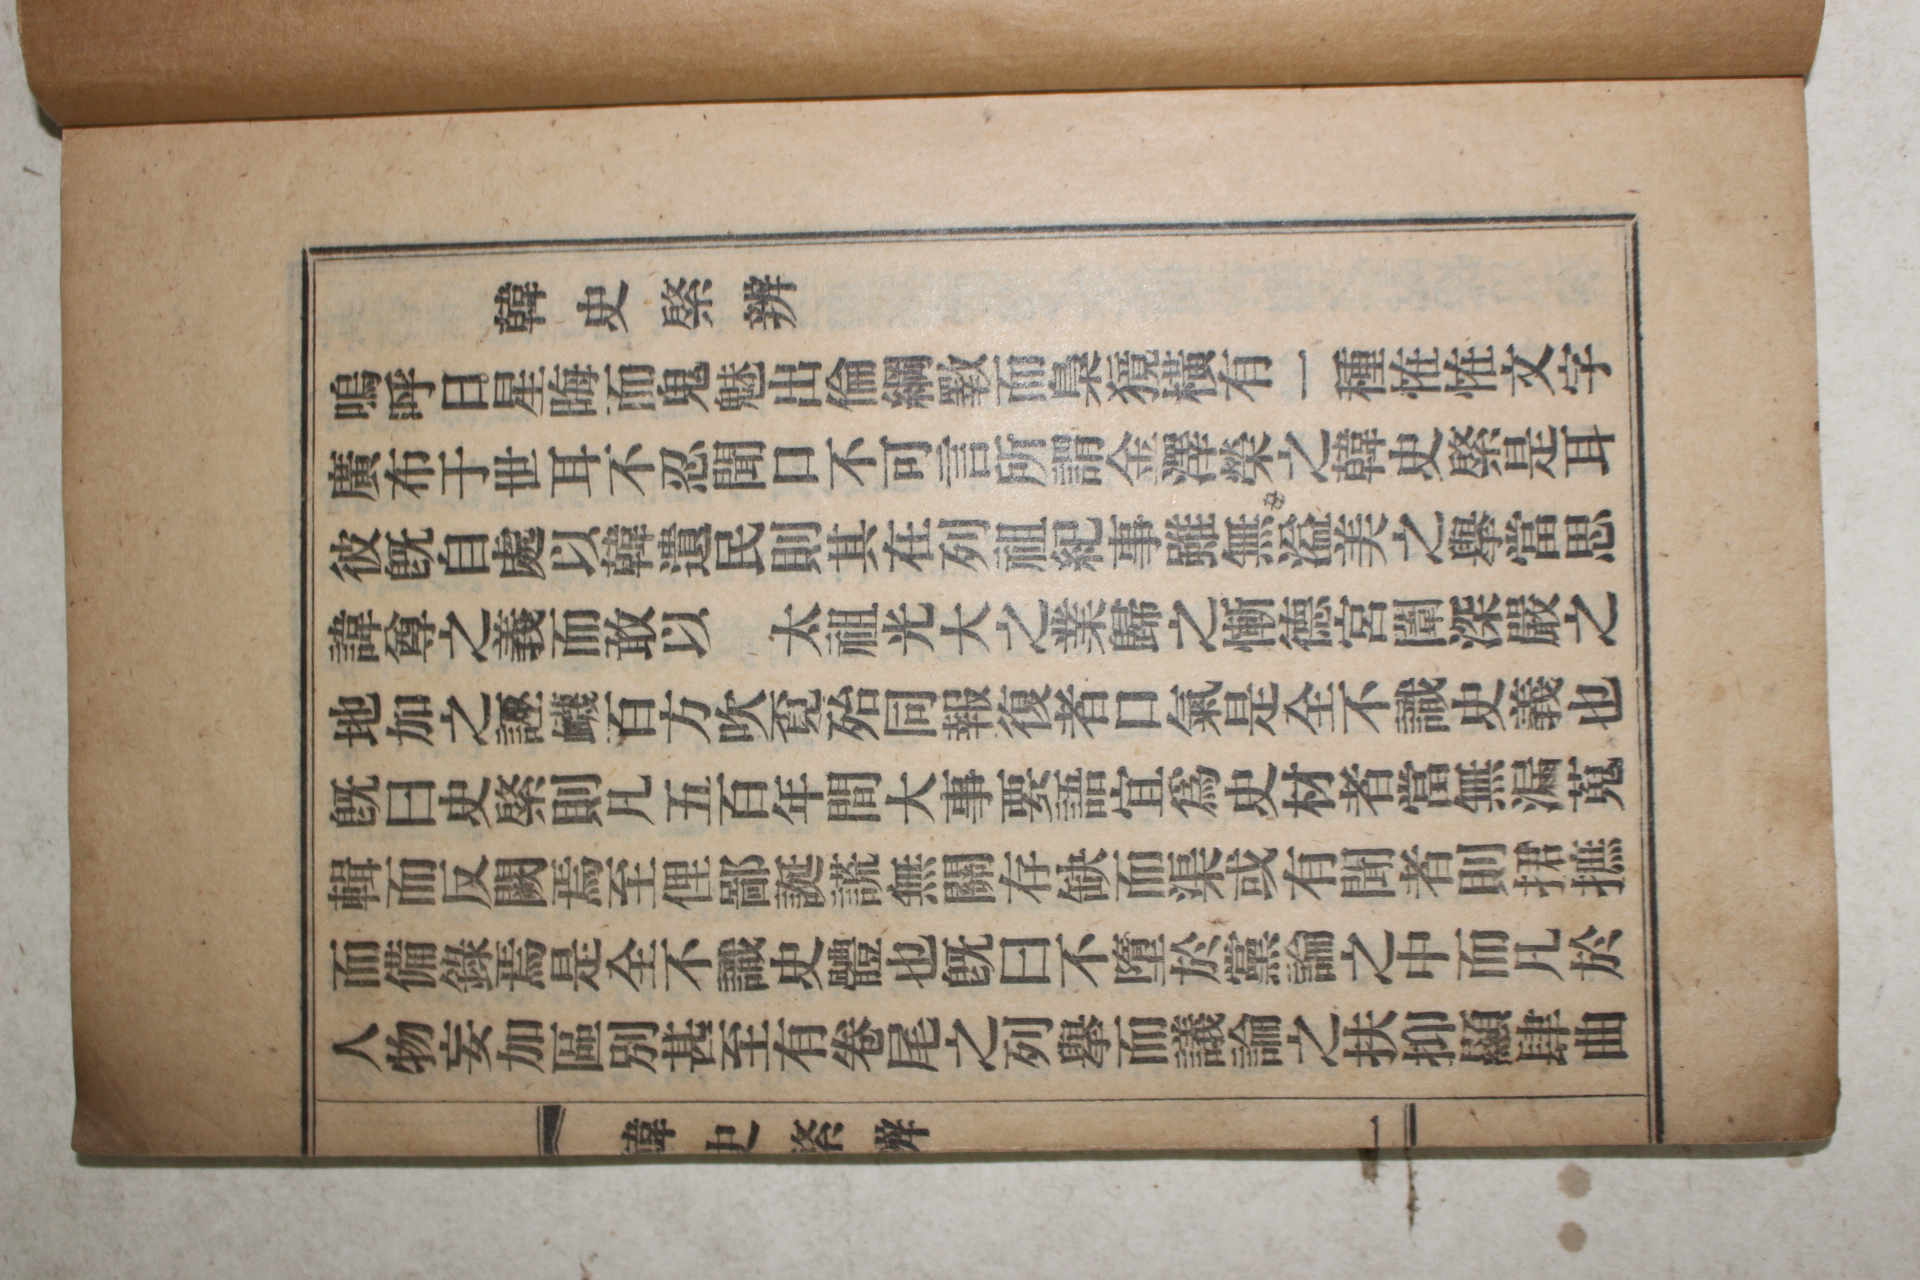 韓史綮辨
嗚呼日星晦而鬼魅出倫綱斁而梟獍橫有一種恠恠文字
廣布于世耳不忍聞口不可言所謂金澤榮之韓史綮是耳
彼旣自處以韓遺民則其在列祖紀事雖無溢美之擧當思
諱尊之義而敢以 太祖光大之業歸之慚德宮闈深嚴之
地加之誣衊百方吹覓殆同報復者口氣是全不識史義也
旣曰史綮則凡五百年間大事要語宜爲史材者當無漏蒐
輯而反闕焉至俚鄙誕謊無關存缺而渠或有聞者則捃摭
而備錄焉是全不識史體也旣曰不墮於黨論之中而凡於
人物妄加區別甚至有卷尾之列擧而議論之扶抑顯肆曲
韓史綮辨 一